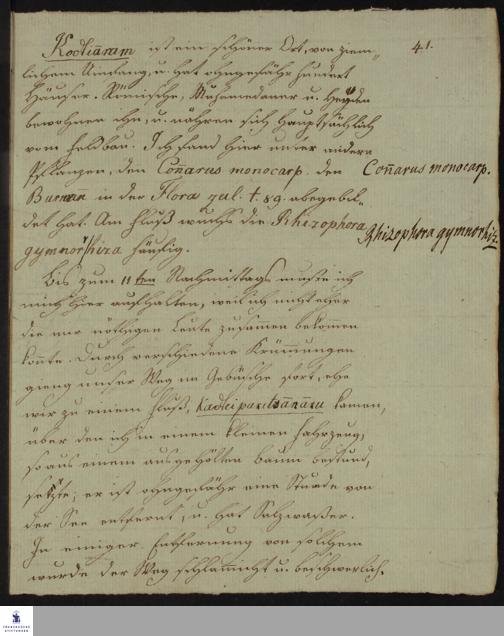 41.
Kodtiāram ist ein schöner Ort, von ziem-
lichem Umfang, u. hat ohngefähr hundert
Häuser. Römische, Muhamedaner u. Heyden
bewohnen ihn, u. nähren sich hauptsächlich
vom Feldbau. Ich fand hier unter andern
Pflanzen, den Con̄arus monocarp. den
Con̄arus monocarp.
Burman̄ in der Flora zeil. t. 89. abgebil-
det hat. Am Fluß wuchs die Rhizophora
Rhizophora gymnorhiz.
gymnorhiza häufig.
Bis zum 11ten Nachmittags mußte ich
mich hier aufhalten, weil ich nicht eher
die mir nöthigen Leute zusam̄en bekom̄en
kon̄te. Durch verschiedene Krümmungen
gieng unser Weg im Gebüsche fort, ehe
wir zu einem Fluß, kamen,
über den ich in einem kleinen Fahrzeug,
so aus einem ausgehölten Baum bestund,
setzte; er ist ohngefähr eine Stunde von
der See entfernt, u. hat Salzwaßer.
In einiger Entfernung von solchem
wurde der Weg schlammicht u. beschwerlich.
FRANCKESCHE
STIFTUNGEN